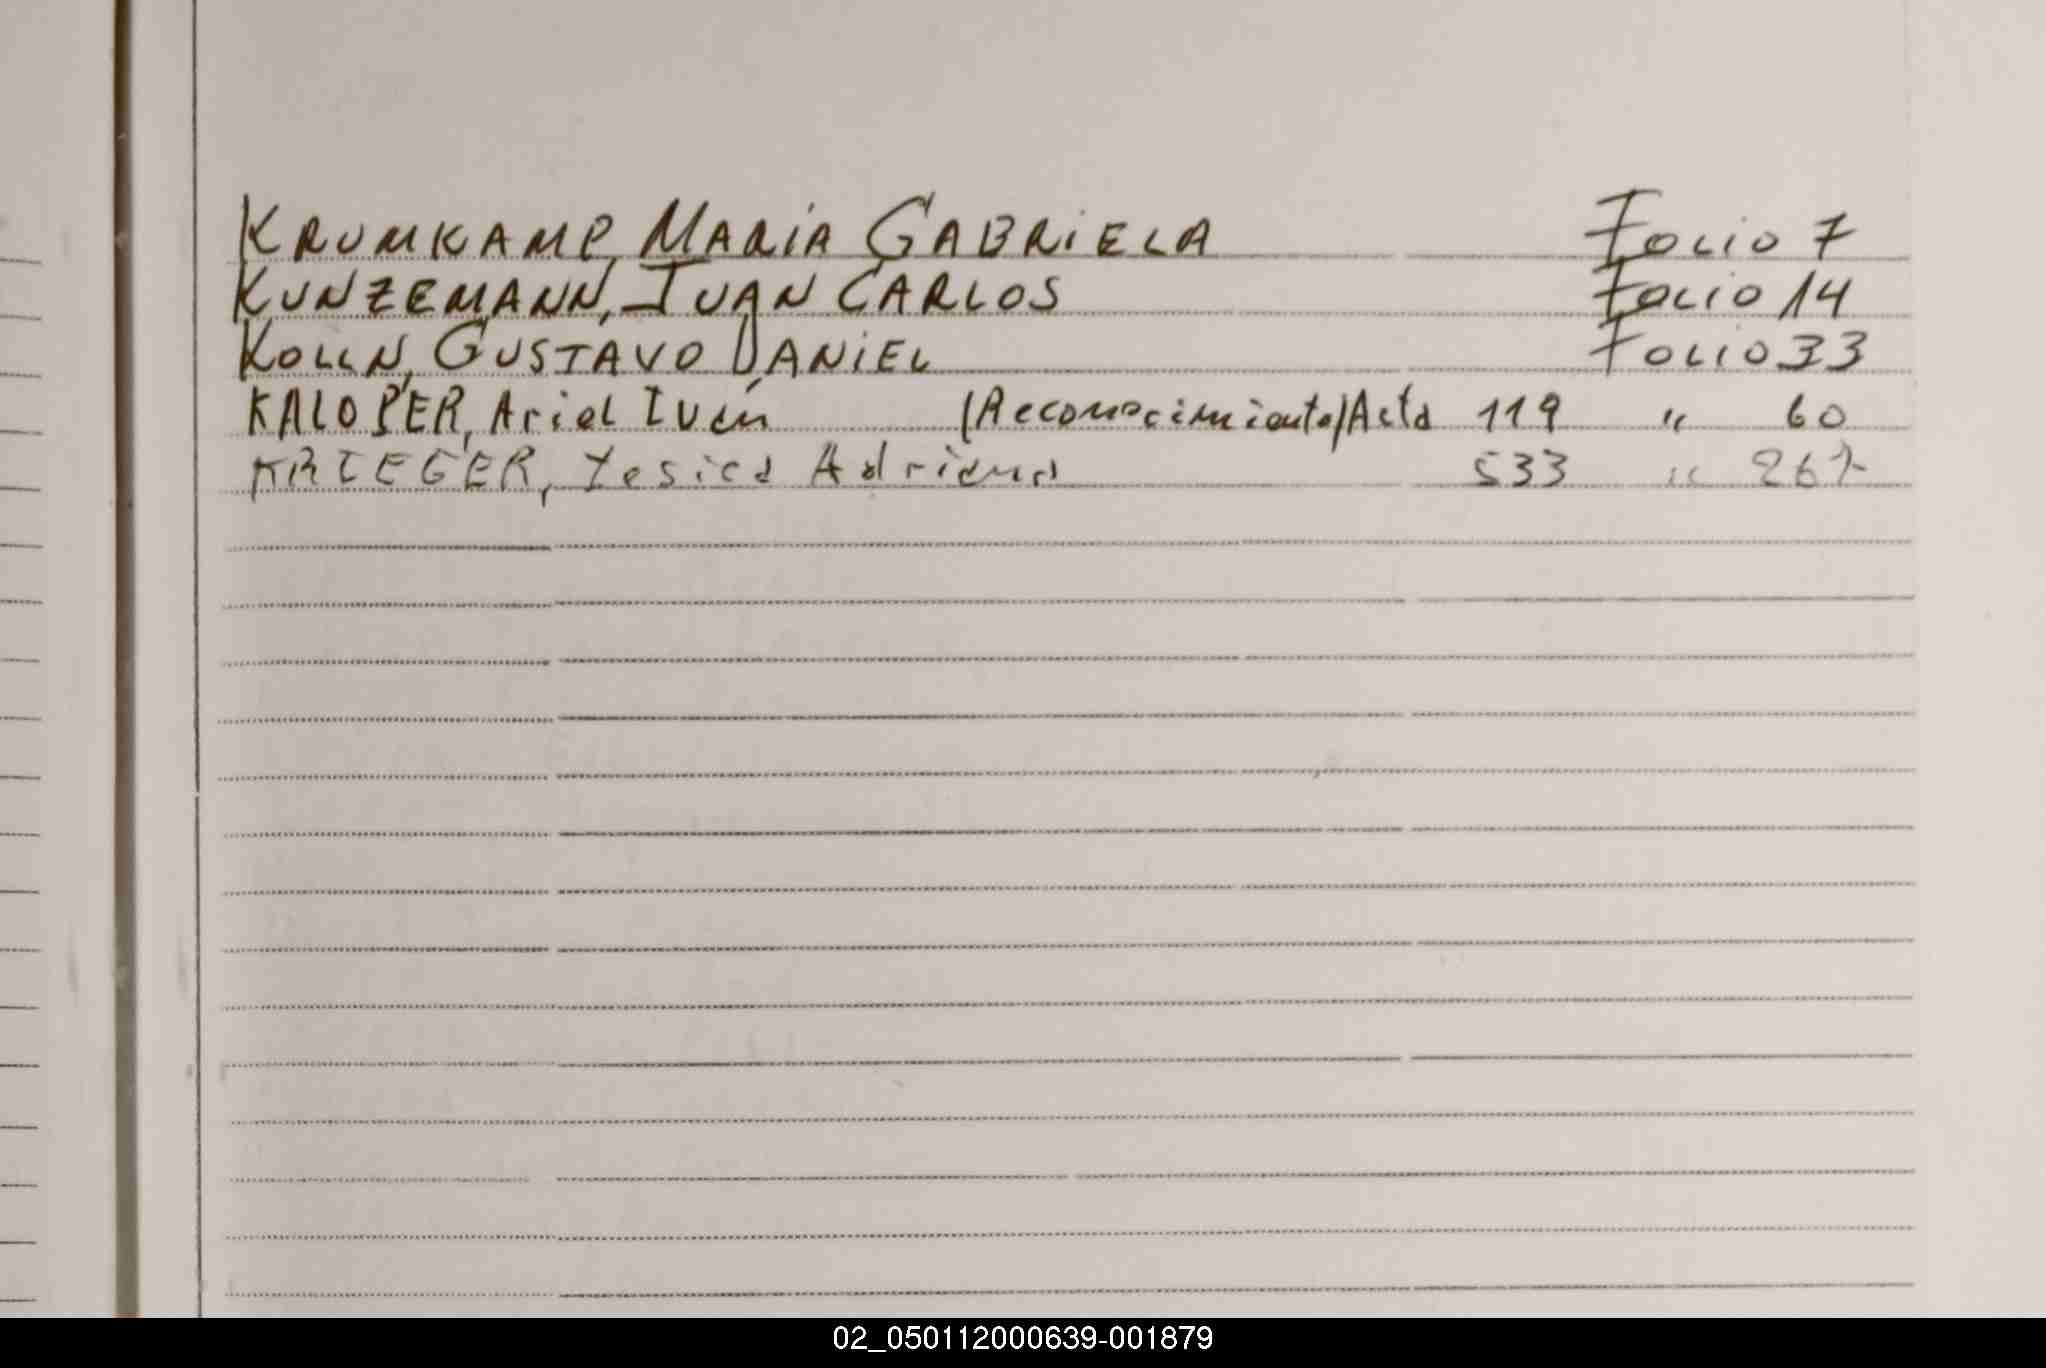 KRUMKAMP, MARÍA GABRIELA Folio 7
KUNZEMANN, JUAN CARLOS Folio 14
KOLLN, GUSTAVO DANIEL Folio 33
KALOPER, Ariel Iván (Reconocimiento) Acta 119 " 60
KRIEGER, Yesica Adriana 533 " 267
02_050112000639-001879